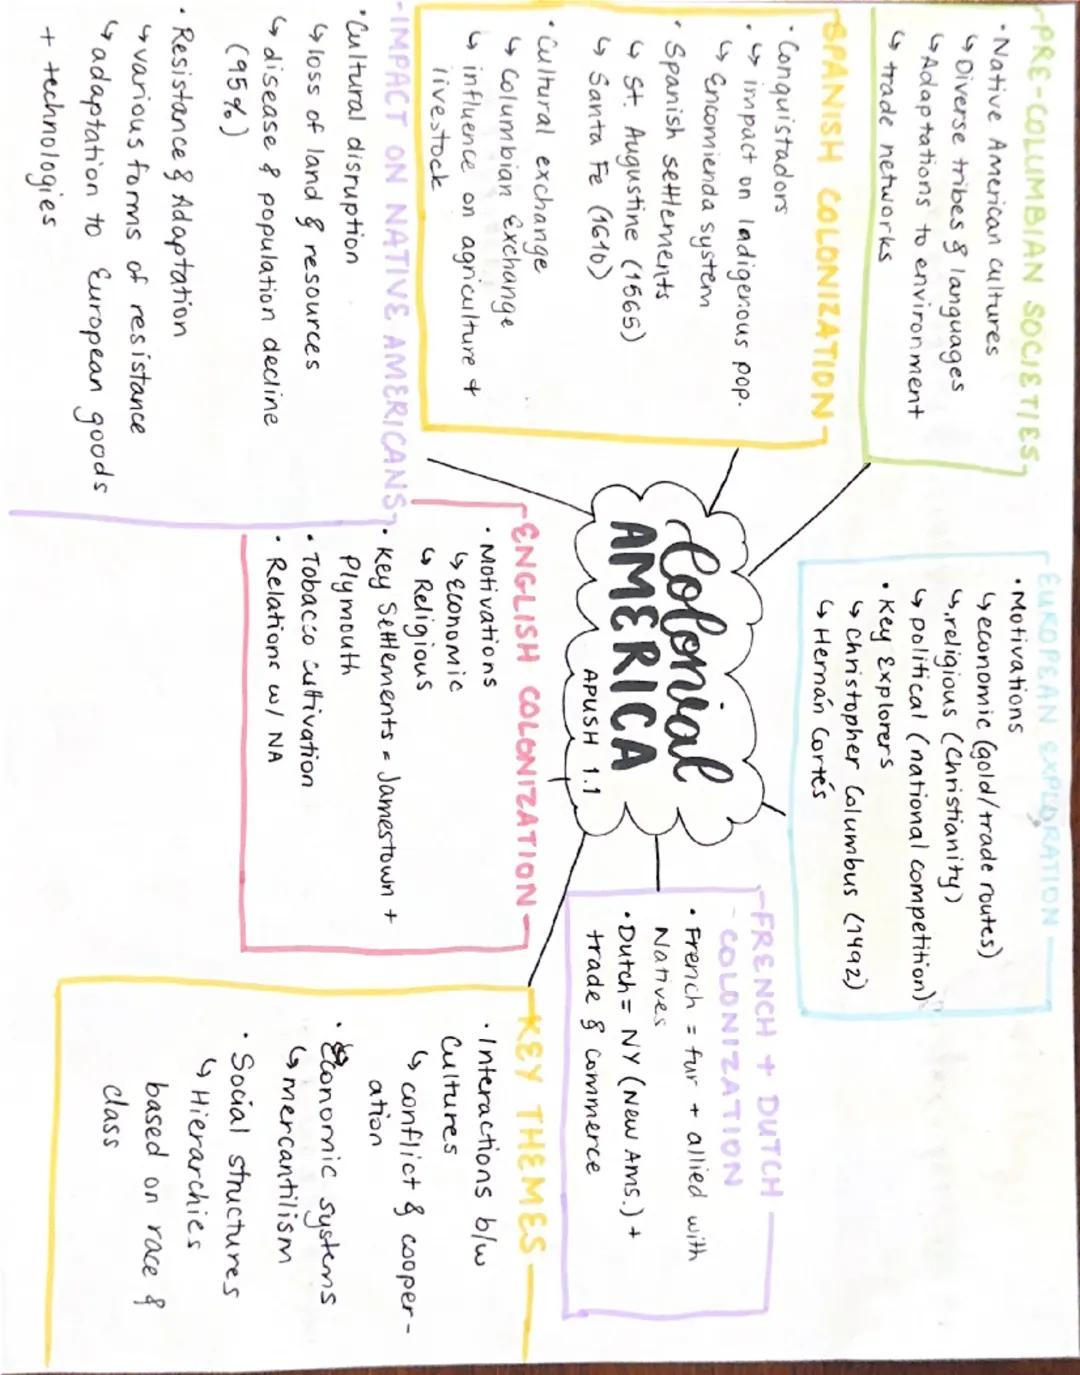 PRE-COLUMBIAN SOCIETIES
• Native American cultures
↳ Diverse tribes & languages
↳ Adaptations to environment
↳ trade networks
EUROPEAN EXPLORATION
• Motivations
↳ economic (gold/trade routes)
↳ religious (Christianity)
↳ political (national competition)
• Key Explorers
↳ Christopher Columbus (1492)
↳ Hernán Cortés
SPANISH COLONIZATION
• Conquistadors
• ↳ impact on Indigenous pop.
↳ Encomienda system
• Spanish settlements
↳ St. Augustine (1565)
↳ Santa Fe (1610)
• Cultural exchange
↳ Columbian Exchange
↳ influence on agriculture +
livestock
Colonial
AMERICA
APUSH 1.1
FRENCH + DUTCH
COLONIZATION
• French = fur + allied with
Natives
• Dutch = NY (New Ams.) +
trade & commerce
IMPACT ON NATIVE AMERICANS
• Cultural disruption
↳ loss of land & resources
↳ disease & population decline
(95%)
• Resistance & Adaptation
↳ various forms of resistance
↳ adaptation to European goods
+ technologies
ENGLISH COLONIZATION
• Motivations
↳ Economic
↳ Religious
• Key Settlements = Jamestown +
Plymouth
• Tobacco cultivation
• Relations w/ NA
KEY THEMES
• Interactions b/w
Cultures
↳ conflict & cooper-
ation
• Economic systems
↳ mercantilism
• Social structures
↳ Hierarchies
based on race &
class